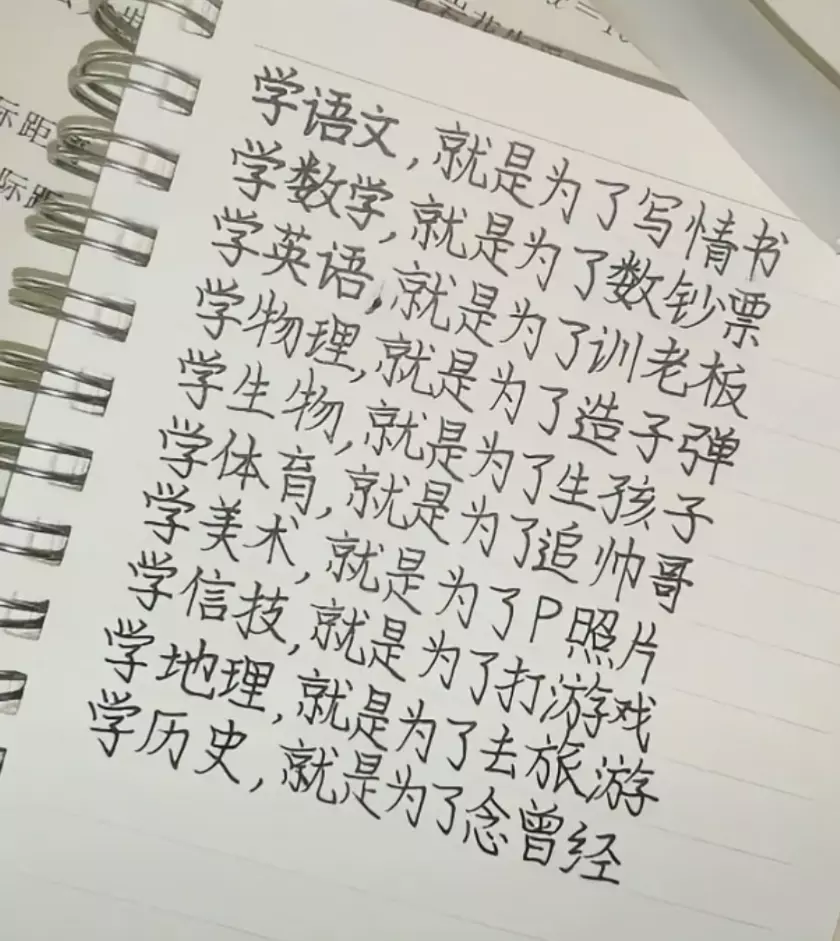 学语文,就是为了写情书
学数学,就是为了数钞票
学英语,就是为了训老板
学物理,就是为了造子弹
学生物,就是为了生孩子
学体育,就是为了追帅哥
学美术,就是为了P照片
学信技,就是为了打游戏
学地理,就是为了去旅游
学历史,就是为了念曾经
际距
际距